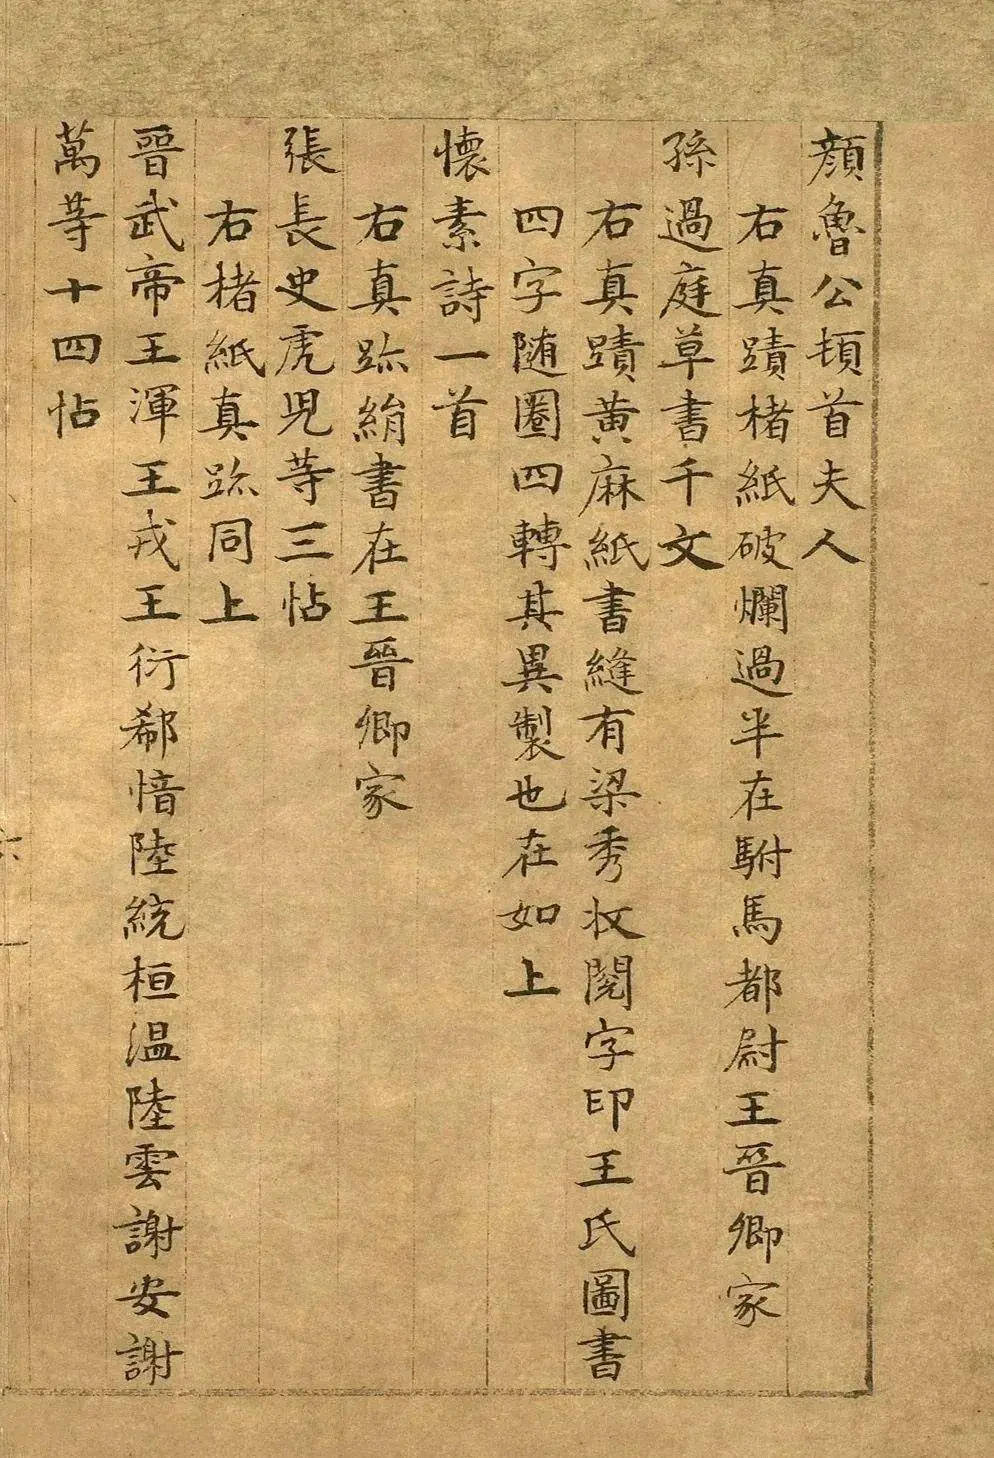 顔魯公頓首夫人
右真蹟楮紙破爛過半在駙馬都尉王晉卿家
孫過庭草書千文
右真蹟黄麻紙書縫有梁秀收閱字印王氏圖書
四字随圈四轉其異製也在如上
懷素詩一首
右真跡絹書在王晉卿家
張長史虎兒等三帖
右楮紙真跡同上
晉武帝王渾王戎王衍郗愔陸統桓温陸雲謝安謝
萬等十四帖
六
一